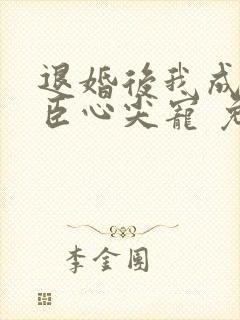 退婚後我成
臣心尖寵
李金團